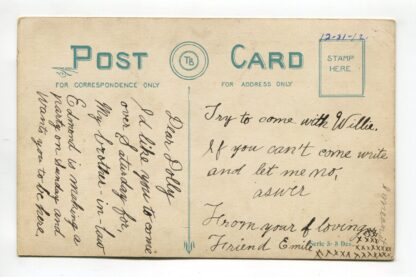 12-21-12
POST CARD
TB
STAMP
HERE
FOR CORRESPONDENCE ONLY
FOR ADDRESS ONLY
Dear Dolly
I'd like you to come
over Saturday for,
My brother-in-law
Edmond is making a
party on Sunday and
Wants you to be here.
Try to come with Willie.
If you can't come write
and let me no,
aswer
From your loving
Friend Emile
Serie 5-8 Des.
xxx
xxxxx
xxxxx